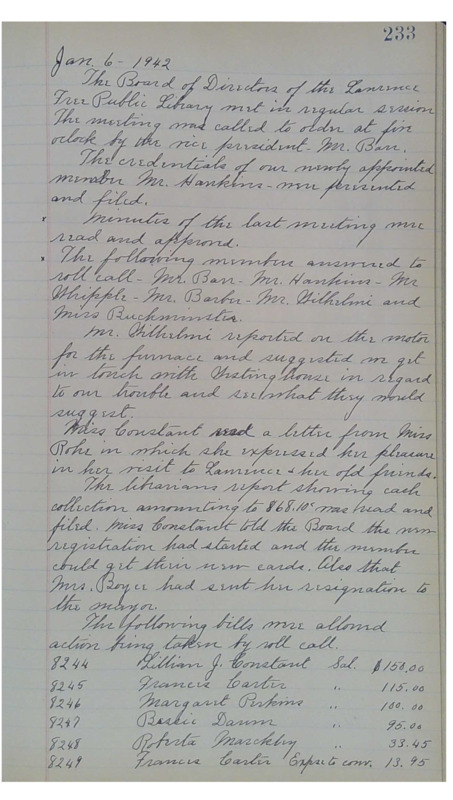 233
Jan. 6 - 1942
The Board of Directors of the Lawrence
Free Public Library met in regular session
The meeting was called to order at five
oclock by the vice president - Mr. Barr.
The credentials of our newly appointed
member Mr. Hankins - were presented
and filed.
x Minutes of the last meeting were
read and approved.
x The following members answered to
roll call - Mr. Barr - Mr. Hankins - Mr
Whipple - Mr. Barber - Mr. Wilhelmi and
Miss Buckminster.
Mr. Wilhelmi reported on the motor
for the furnace and suggested we get
in touch with Westinghouse in regard
to our trouble and see what they would
suggest.
Miss Constant read a letter from Miss
Rohe in which she expressed her pleasure
in her visit to Lawrence & her old friends.
The librarians report showing cash
collection amounting to $68.10 was read and
filed. Miss Constant told the Board the new
registration had started and the member
could get their new cards. Also that
Mrs. Boyer had sent her resignation to
the mayor.
The following bills were allowed
action being taken by roll call.
8244 Lillian J. Constant Sal. $150.00
8245 Francis Carter " 115.00
8246 Margaret Perkins " 100.00
8247 Daum " 95.00
8248 Roberta " 33.45
8249 Francis Carter conv. 13.95